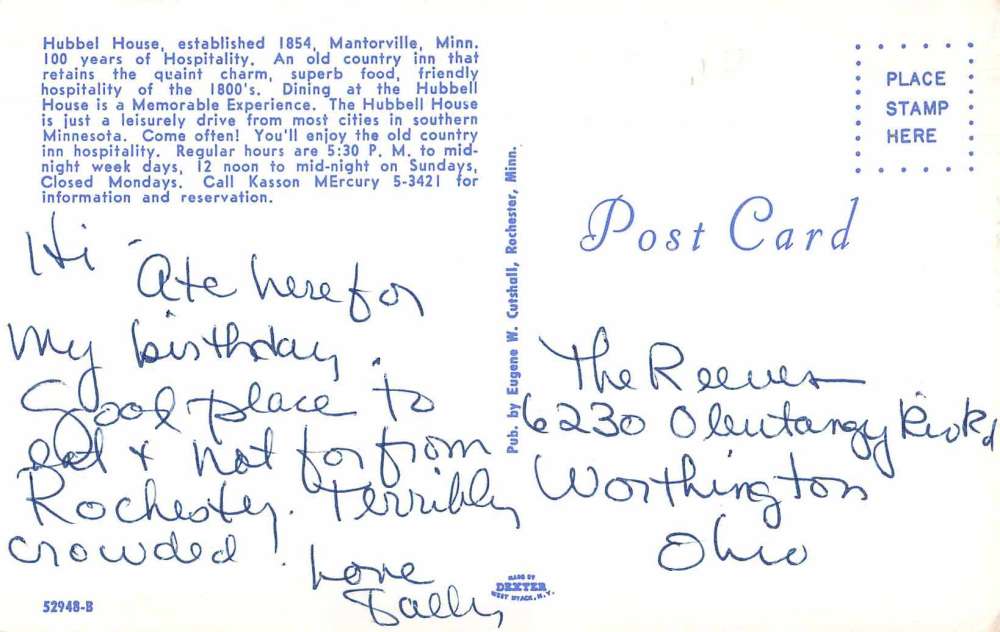 Hubbel House, established 1854, Mantorville, Minn.
100 years of Hospitality. An old country inn that
retains the quaint charm, superb food, friendly
hospitality of the 1800's. Dining at the Hubbell
House is a Memorable Experience. The Hubbell House
is just a leisurely drive from most cities in southern
Minnesota. Come often! You'll enjoy the old country
inn hospitality. Regular hours are 5:30 P. M. to mid-
night week days, 12 noon to mid-night on Sundays,
Closed Mondays. Call Kasson MErcury 5-3421 for
information and reservation.
Hi
Ate here for
my birthday.
Good place to
eat + not far from
Rochester. Terribly
crowded!
Love
Sally
52948-B
Pub. by Eugene W. Cutshall, Rochester, Minn.
MADE BY
DEXTER
WEST NYACK, N.Y.
PLACE
STAMP
HERE
Post Card
The Reeves
6230 Olentangy
Worthington
Ohio